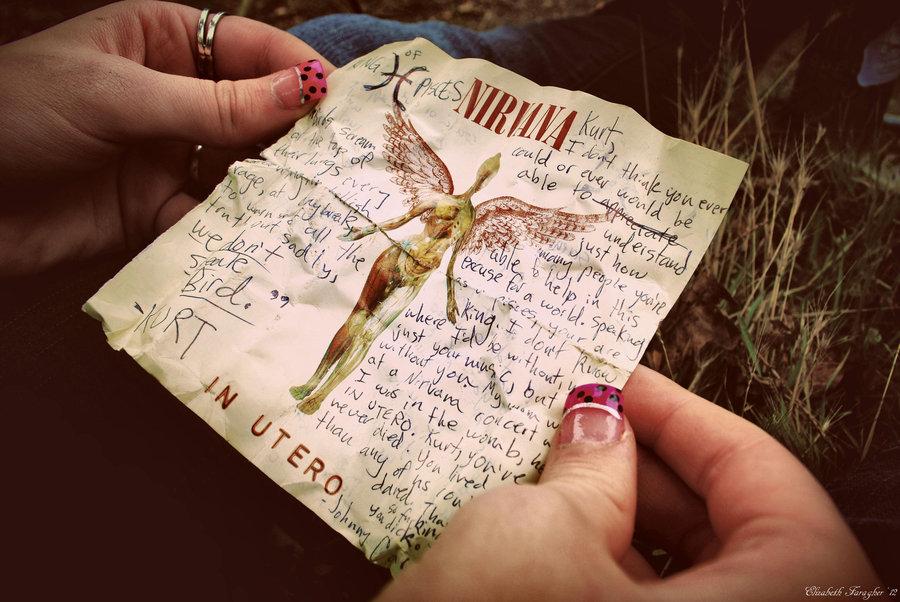 KING OF
PISCES
NIRVANA
birds scream
at the top of
their lungs every
rage, at daybreak,
to warn us all the
truth, but sadly,
we don't
speak
Bird."
-KURT
IN UTERO
Kurt,
I don't think you ever
could or ever would be
able to appreciate
understand
just how
many people you're
able to help in this
excuse for a world. speaking
as a pisces, your are a
King. I don't know
where I'd be without
just your music, but
without you. My mom
at a Nirvana concert
I was in the womb, he
IN UTERO. Kurt, you've
never died. You lived
than any of us
dared. Thank
so fucking
you dick.
-Johnny
Elizabeth Faragher '12